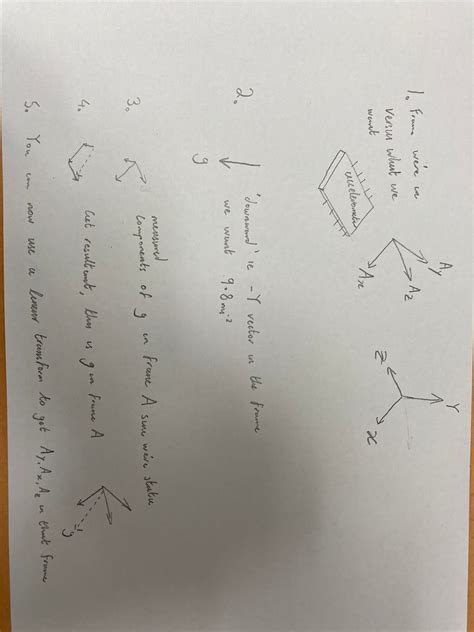 1. Frame we're in
versus what we
want
accelerometer
Ay
Az
Ax
Y
Z
x
2.
g
'downward' ie -Y vector in the frame
we want 9.8ms⁻²
3.
measured
components of g in frame A since we're static
4.
Get resultant, this is g in frame A
g
5. You can now use a linear transform to get Ay, Ax, Az in that frame